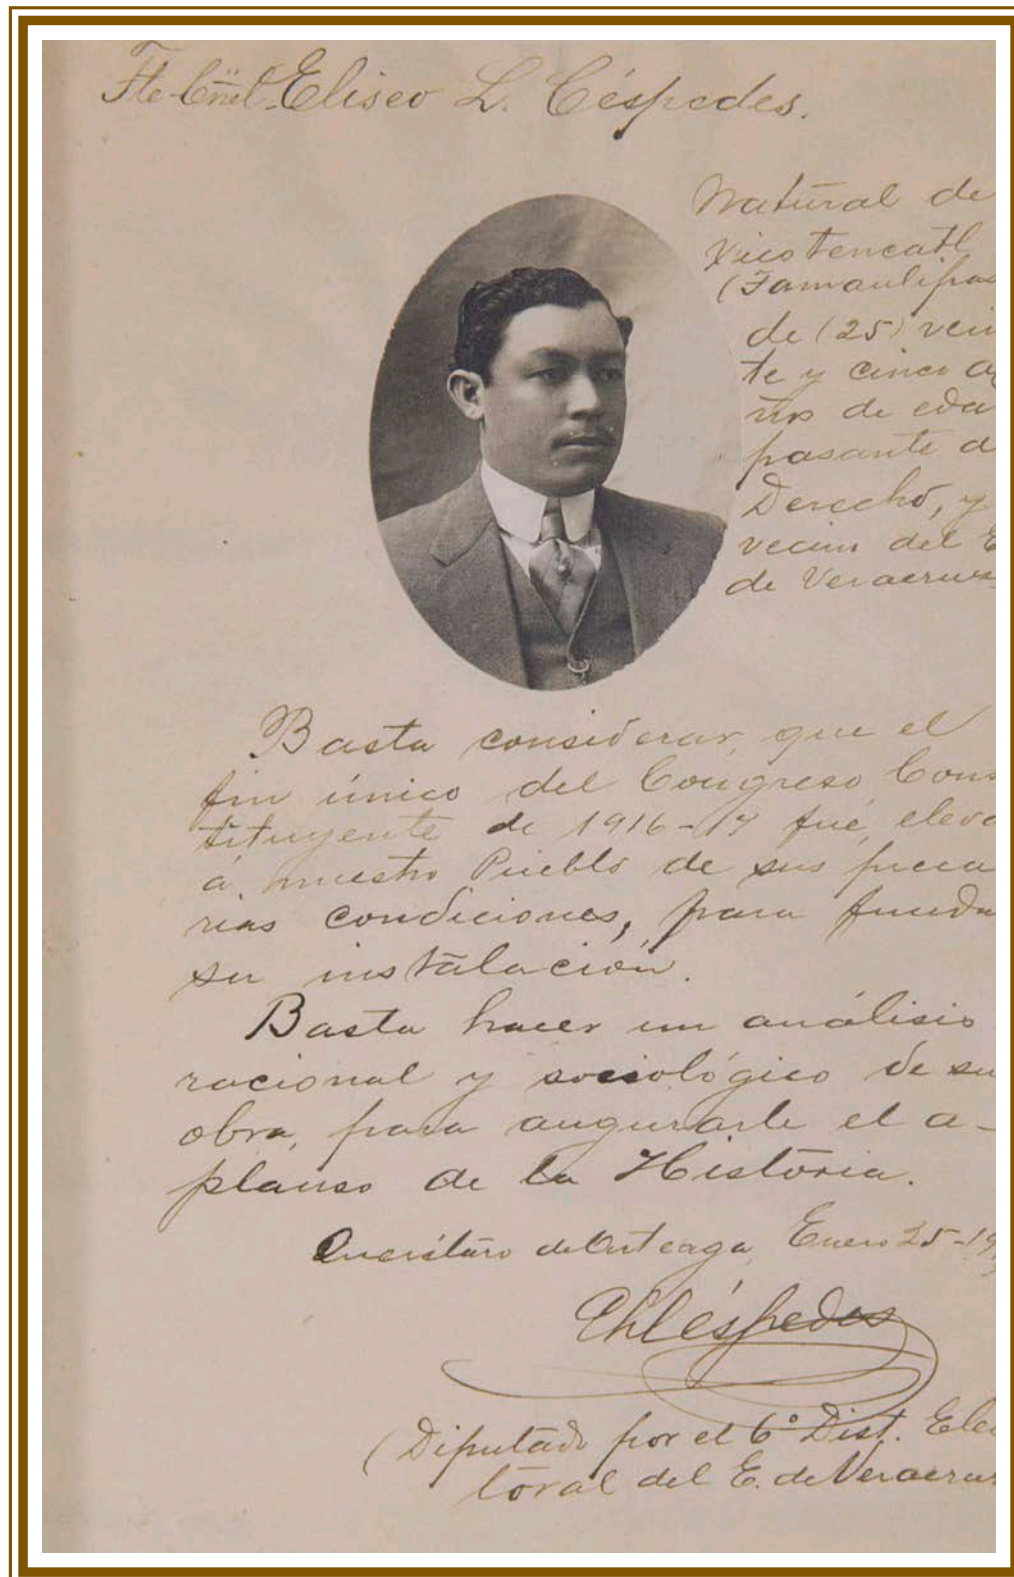 Tte. Cnel. Eliseo L. Céspedes.
Natural de
Xicotencatl
(Tamaulipas
de (25) vein
te y cinco a
ños de eda
pasante d
Derecho, y
vecino del E
de Veracruz
Basta considerar, que el
fin único del Congreso Cons
tituyente de 1916-17 fué, eleva
á nuestro Pueblo de sus preca
rias condiciones, para funda
su instalación.
Basta hacer un análisis
racional y sociológico de su
obra, para augurarle el a-
plauso de la Historia.
Querétaro de Arteaga, Enero 25-19
ELCéspedes
(Diputado por el 6° Dist. Elec
toral del E. de Veracruz